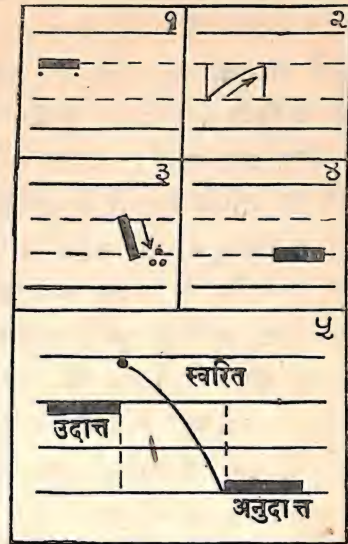 १
२
३
४
५
स्वरित
उदात्त
अनुदात्त